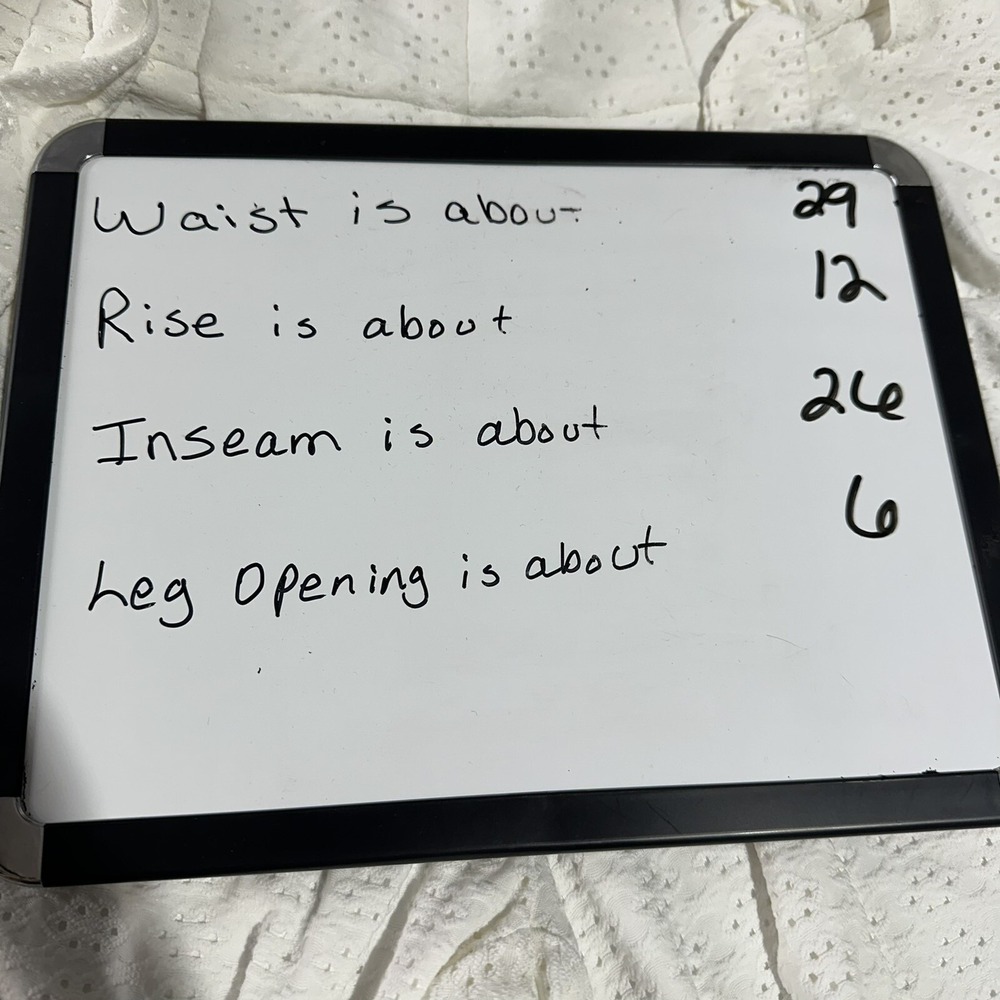 Waist is about 29
Rise is about 12
Inseam is about 26
Leg Opening is about 6